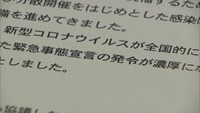 分散開催をはじめとした感染
備を進めてきました。
新型コロナウイルスが全国的に
た緊急事態宣言の発令が濃厚に
としました。
協議し